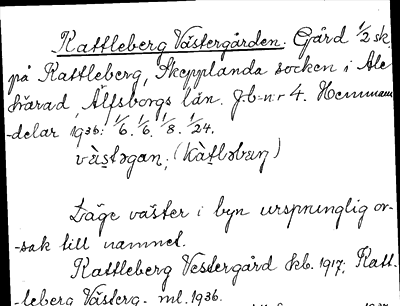 Kattleberg Västergården. Gård 1/2 sk.
på Kattleberg, Skepplanda socken i Ale
härad, Älfsborgs län. J.b.n:r 4. Hemmans
-delar 1936: 1/6. 1/6. 1/8. 1/24.
västəgan; (kàtləbærj)
Läge väster i byn ursprunglig or-
-sak till namnet.
Kattleberg Vestergård Ekb. 1917; Katt-
-leberg Västerg. ml. 1936.